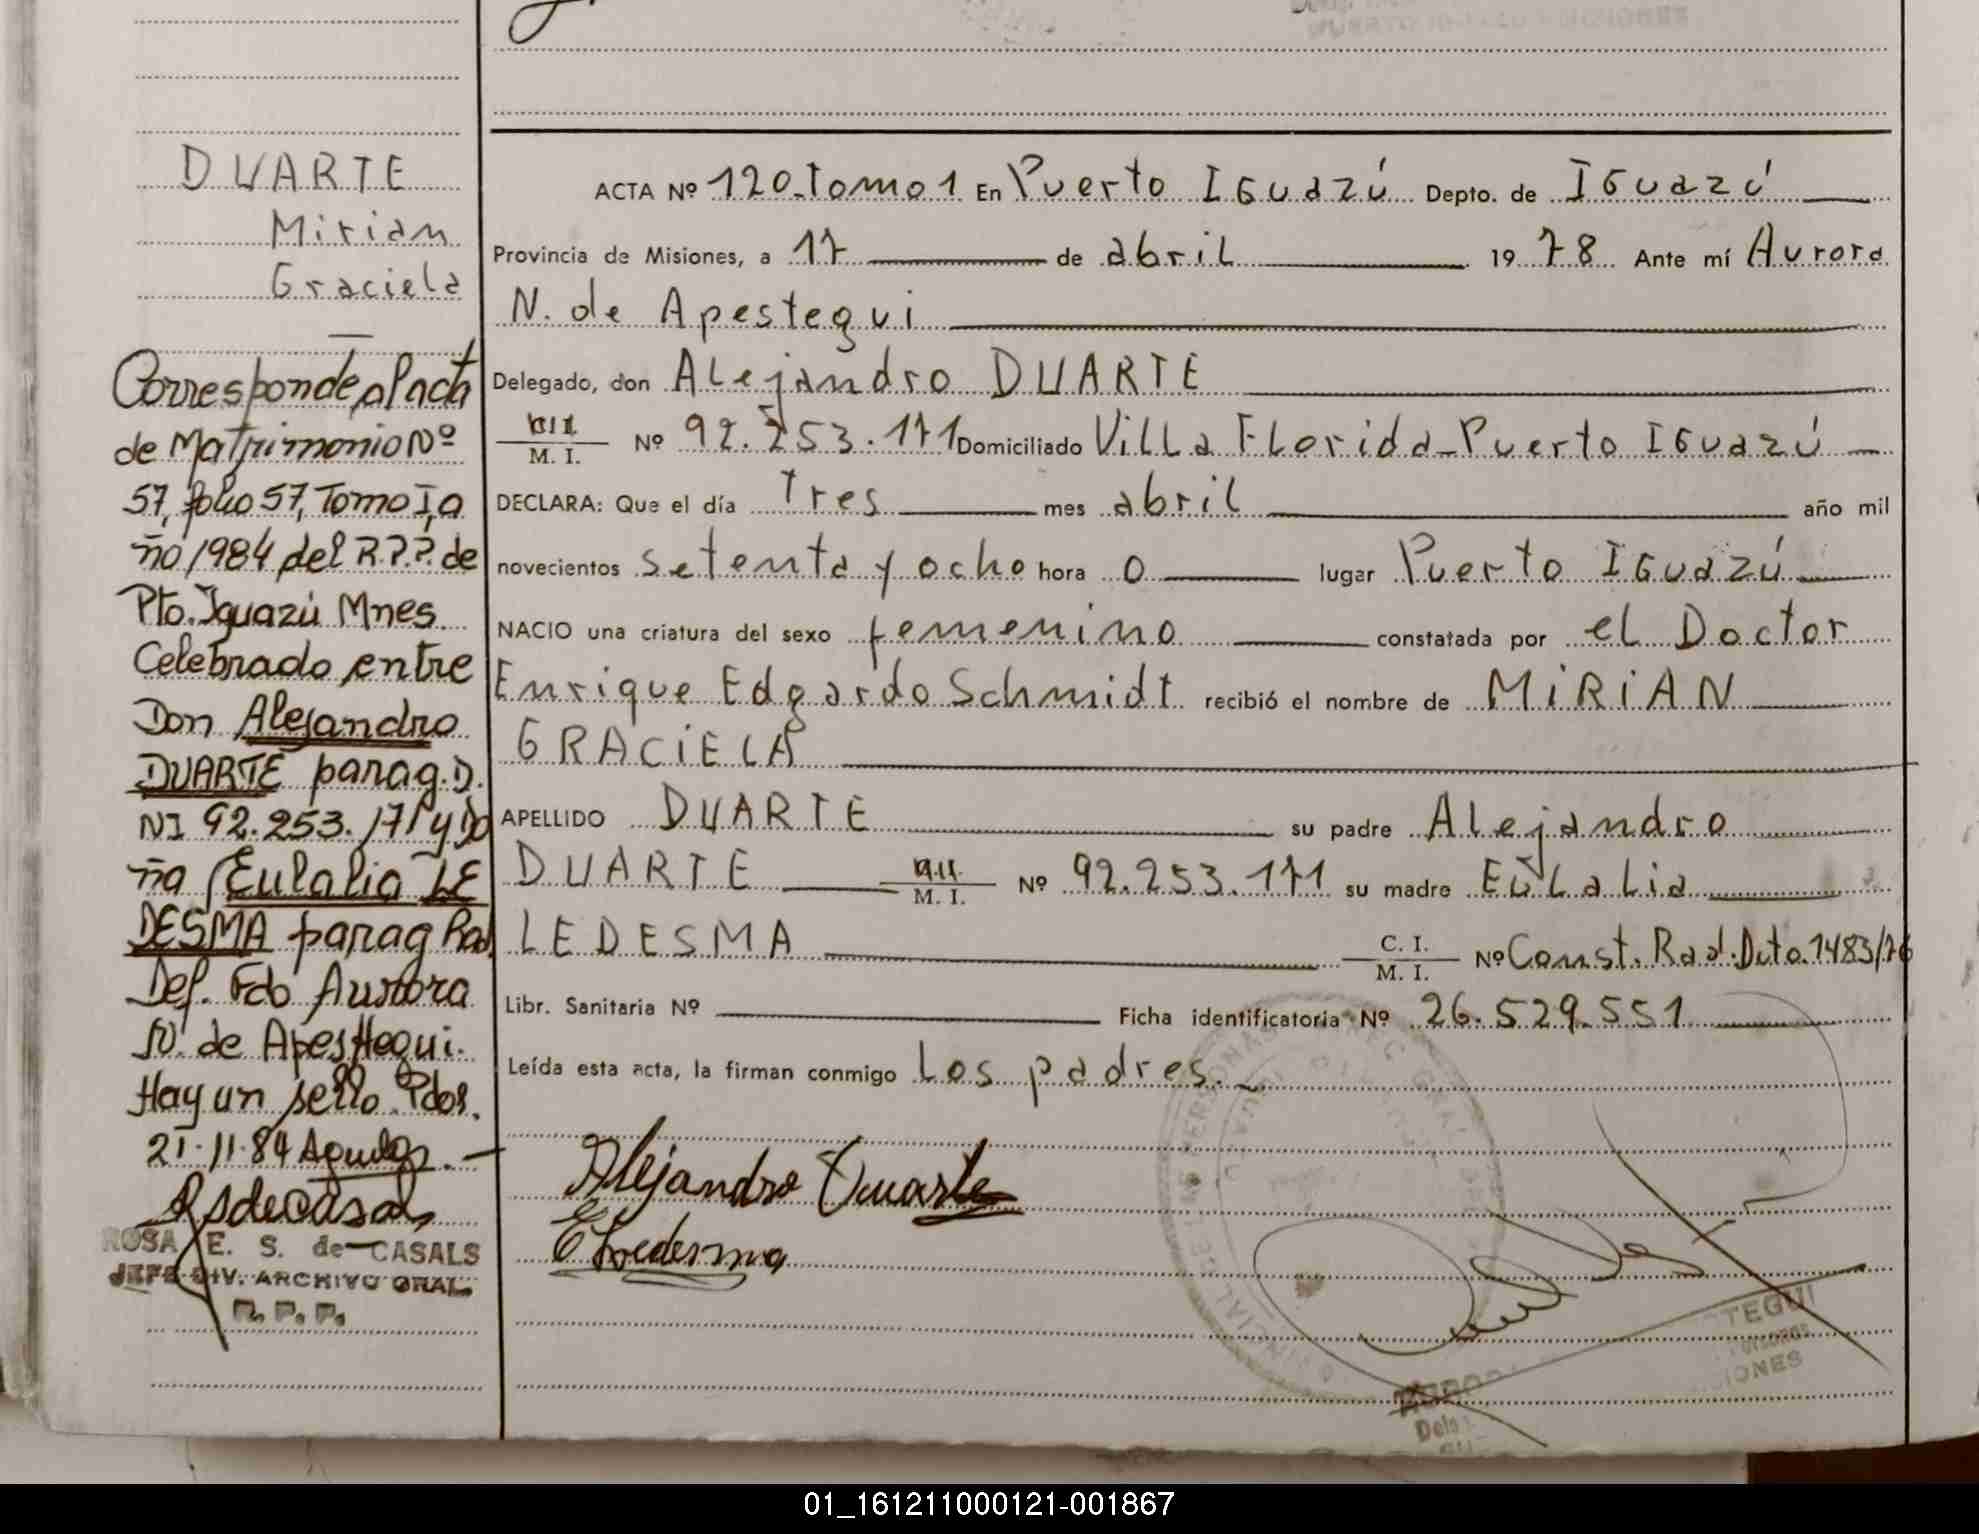 DUARTE
Mirian
Graciela
Corresponde al acta
de Matrimonio Nº
57, folio 57, Tomo I, a
ño 1984 del R.P.P. de
Pto. Iguazú Mnes.
Celebrado entre
Don Alejandro
DUARTE parag. D.
NI 92.253.171 y Do
ña Eulalia LE
DESMA parag Rad.
Def. Fdo Aurora
N. de Apesttegui.
Hay un sello. Pdos.
21-11-84
ROSA E. S. de CASALS
JEFE DIV. ARCHIVO GRAL.
R. P. P.
ACTA Nº 120-Tomo 1 En Puerto Iguazú Depto. de Iguazú
Provincia de Misiones, a 17 de abril 19 78 Ante mí Aurora
N. de Apestegui
Delegado, don Alejandro DUARTE
M. I. Nº 92.253.171 Domiciliado Villa Florida-Puerto Iguazú
DECLARA: Que el día Tres mes abril año mil
novecientos setenta y ocho hora 0 lugar Puerto Iguazú
NACIO una criatura del sexo femenino constatada por el Doctor
Enrique Edgardo Schmidt recibió el nombre de MiRiAN
GRACiELA
APELLIDO DUARTE su padre Alejandro
DUARTE M. I. Nº 92.253.171 su madre Eulalia
LEDESMA C. I. M. I. Nº Const. Rad. Dcto. 1483/76
Libr. Sanitaria Nº Ficha identificatoria Nº 26.529.551
Leída esta acta, la firman conmigo los padres.
Alejandro Duarte
E Ledesma
01_161211000121-001867